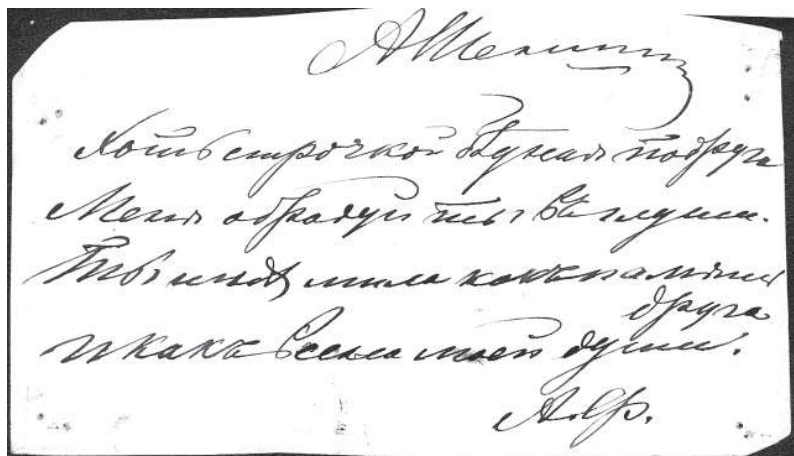 А Шенши
Хоть строчкой бѣдная подруга
Меня обрадуй ты въ глуши.
Ты мнѣ мила какъ память
друга
И какъ весна моей души.
А. Ф.